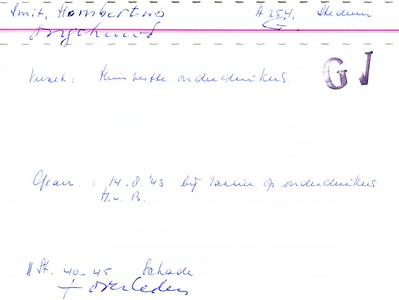 Smit, Hombertus A 254. Stedum
GJ
Huisvestte onderduikers.
Gearr. : 14.8.'43 bij razzia op onderduikers.
H.v.B.
St. 40-45 Schade
+ overleden